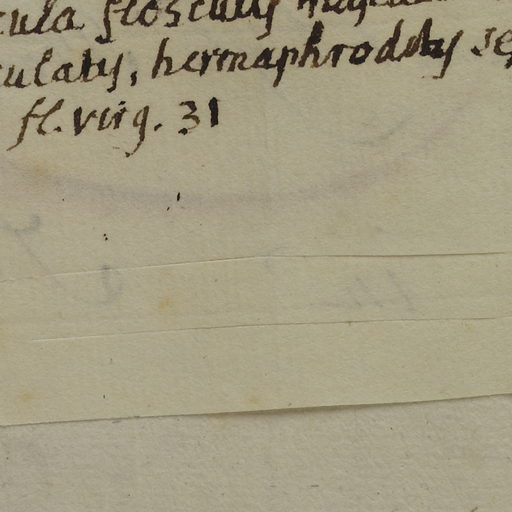 cula flosculis
culatis, hermaphroditis se
fl. virg. 31